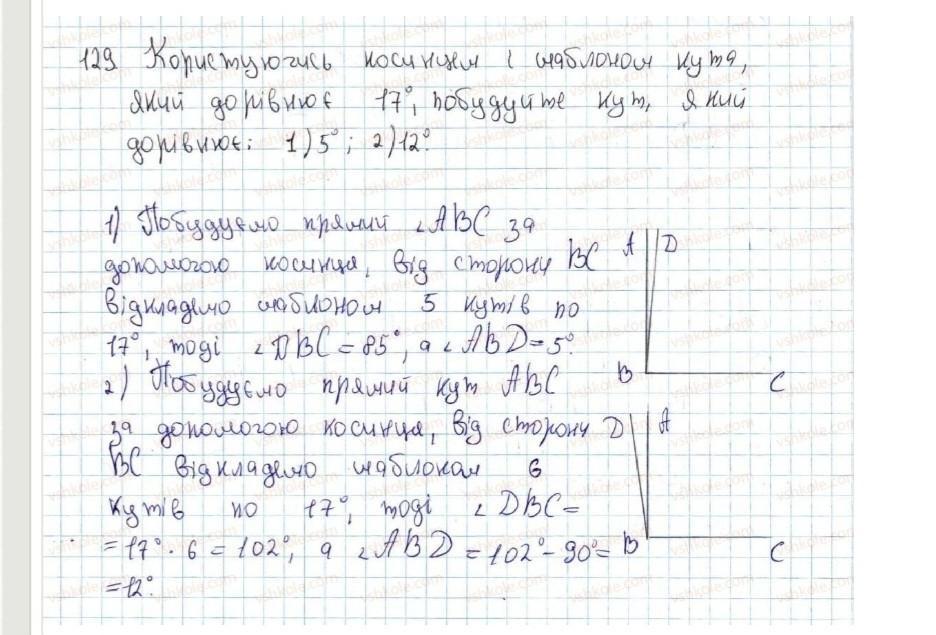 129 Користуючись косинцем і шаблоном кута,
який дорівнює 17°, побудуйте кут, який
дорівнює: 1) 5°; 2) 12°.
1) Побудуємо прямий ∠ABC за
допомогою косинця, від сторони BC
відкладемо шаблоном 5 кутів по
17°, тоді ∠DBC = 85°, а ∠ABD = 5°.
A D
B C
2) Побудуємо прямий кут ABC
за допомогою косинця, від сторони
BC відкладемо шаблоном 6
кутів по 17°, тоді ∠DBC =
= 17° · 6 = 102°, а ∠ABD = 102° - 90° =
= 12°.
D A
B C
vshkole.com